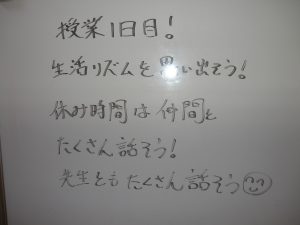 授業1日目!
生活リズムを思い出そう!
休み時間は仲間と
たくさん話そう!
先生ともたくさん話そう